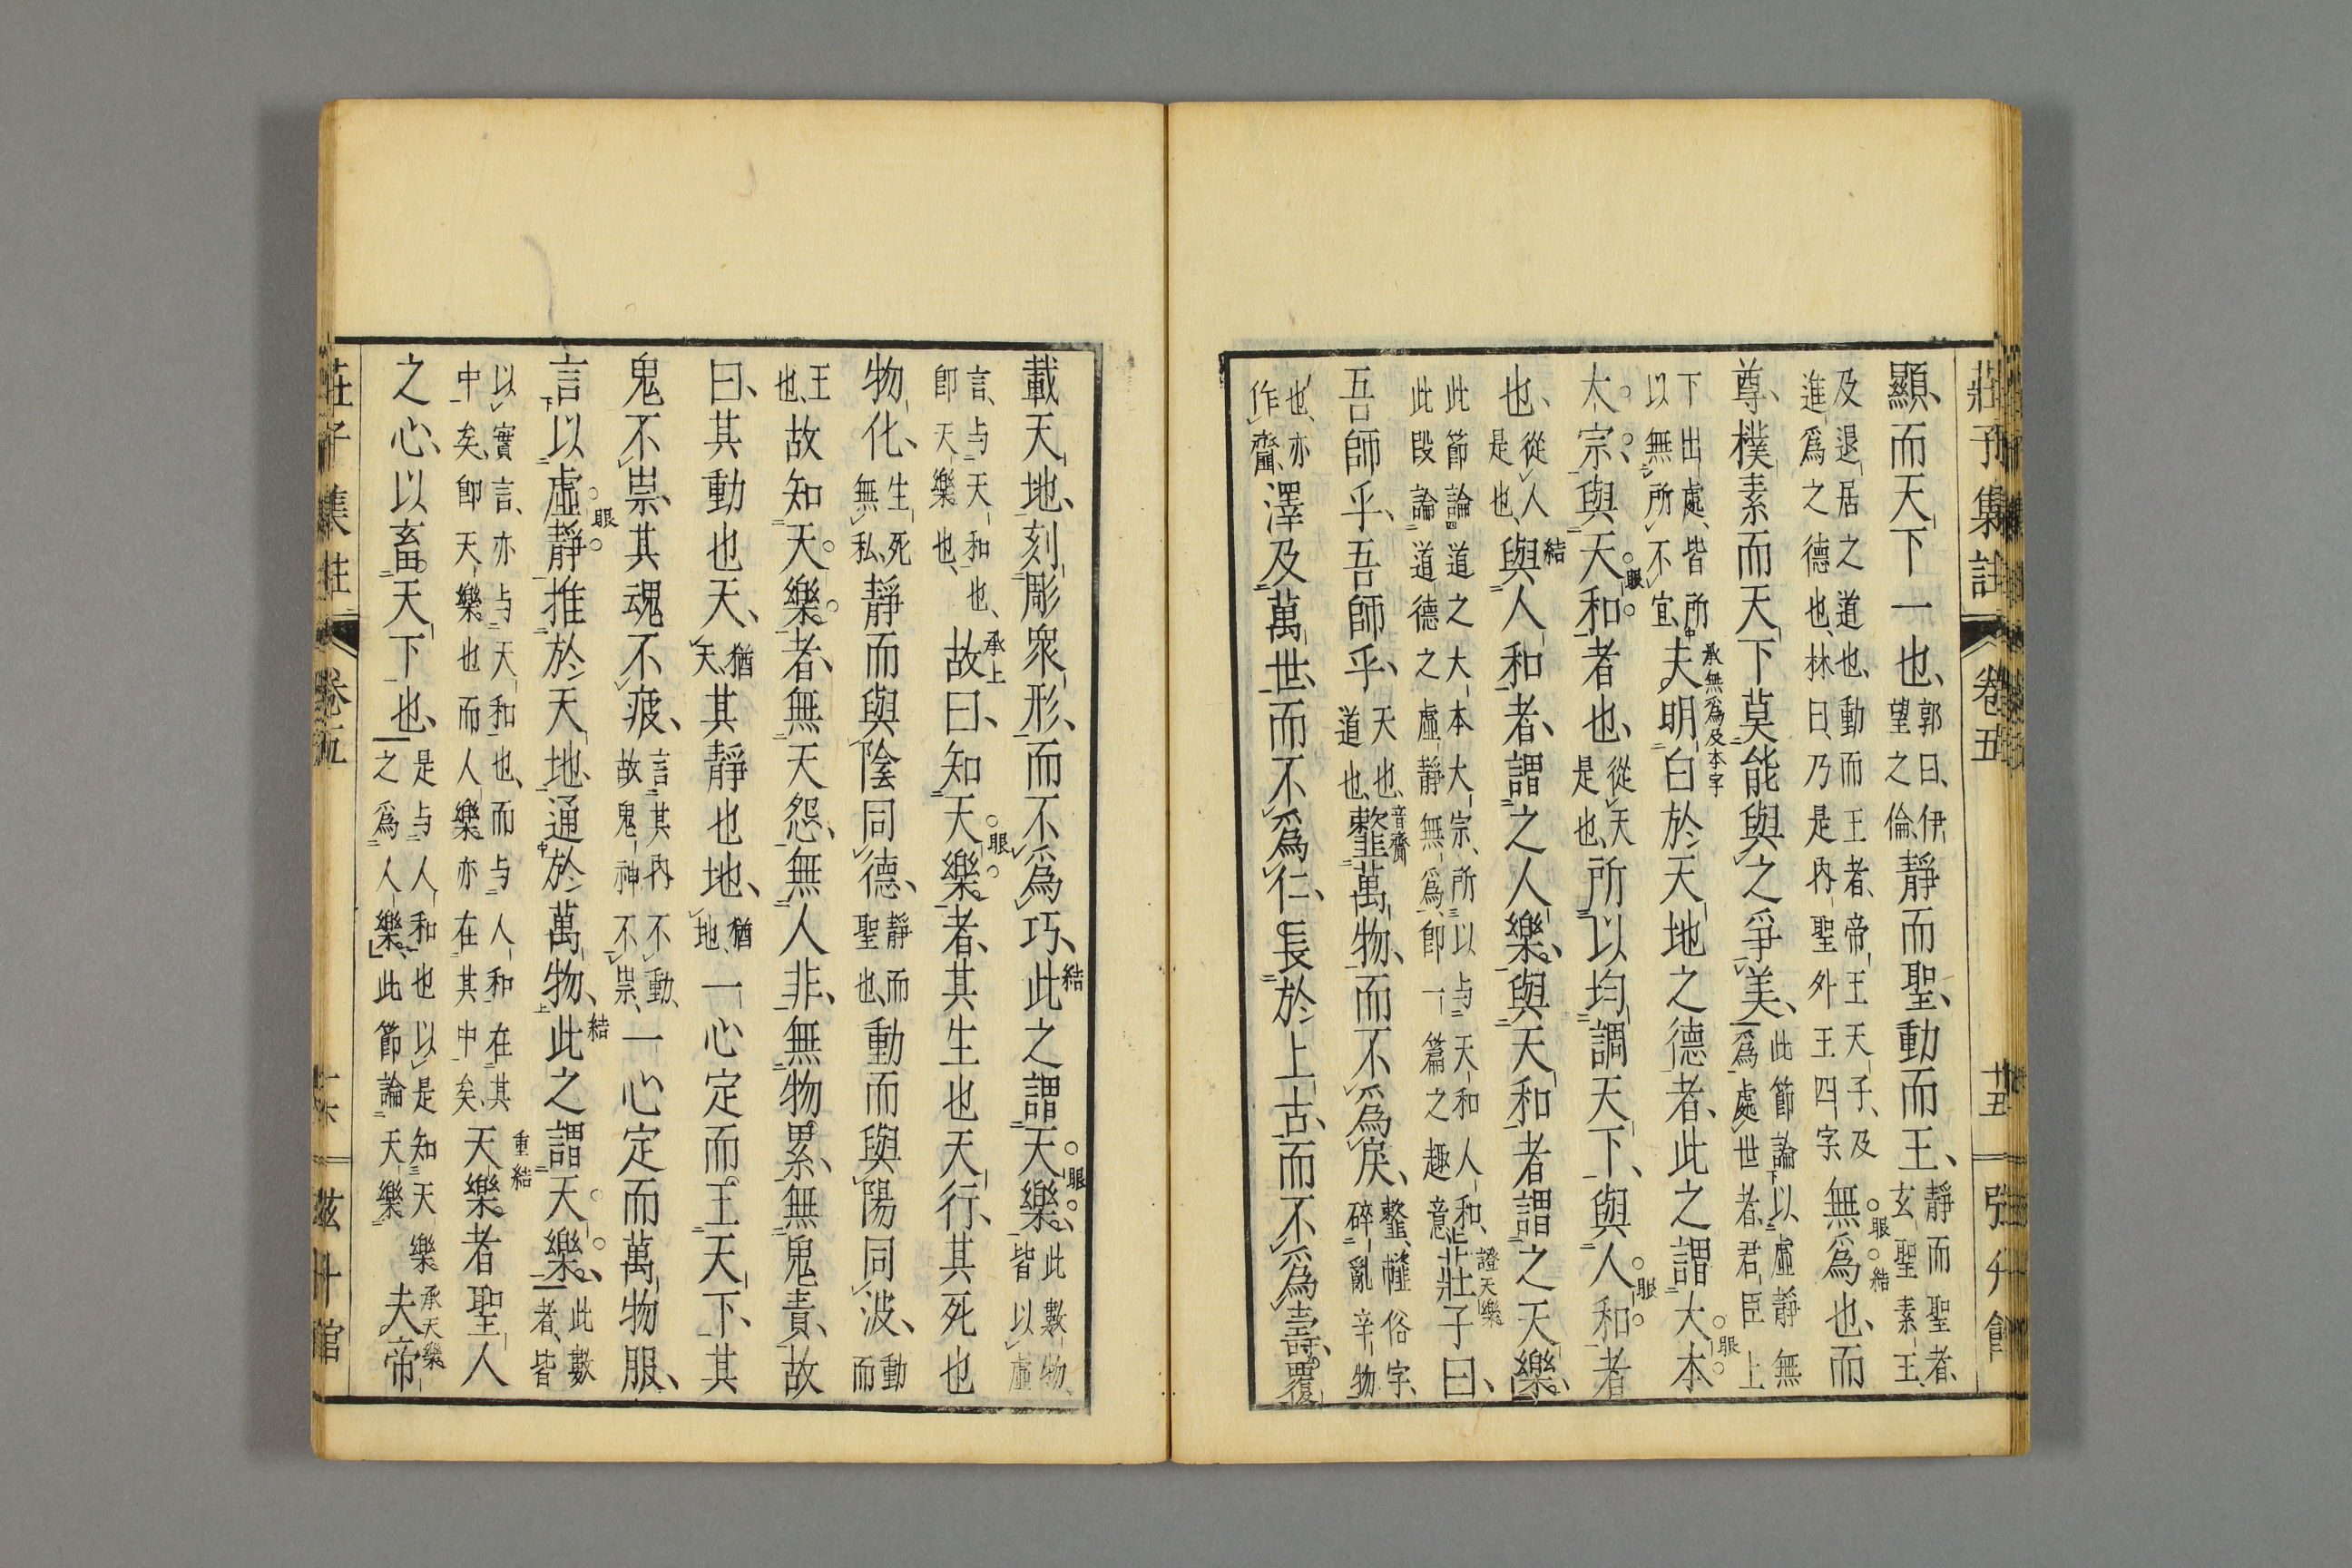 莊子集註 卷五 十五
顯、而天下一也、郭曰、伊望之倫、靜而聖、動而王、靜而聖者、玄聖素王、
及退居之道也、動而王者、帝王天子、及進爲之德也、林曰、乃是内聖外王四字、無爲也、而
眼 結
尊、樸素而天下莫能與之爭美、此節論以虛靜無爲處世者、君臣上
下出處、皆所以無所不宜、夫明白於天地之德者、此之謂大本
承無爲及本字 眼
大宗、與天和者也、從天是也、所以均調天下、與人和者
眼 眼
也、從人是也、與人和者、謂之人樂、與天和者謂之天樂、
結
此節論道之大本大宗、所以与天和人和、此段論道德之虛靜無爲、卽一篇之趣意、莊子曰、
證天樂
吾師乎、吾師乎、天也、道也、䪠萬物、而不爲戾、䪠、俗字、碎亂辛物
音齎
也、亦作齏、澤及萬世、而不爲仁、長於上古、而不爲壽、覆
載天地、刻彫衆形、而不爲巧、此之謂天樂、此數物、皆以虛
結 眼
言、与天和也、卽天樂也、故曰、知天樂者、其生也天行、其死也
承上 眼
物化、生死無私、靜而與陰同德、靜而聖也、動而與陽同波、動而
王也、故知天樂者、無天怨、無人非、無物累、無鬼責、故
曰、其動也天、猶天、其靜也地、猶地、一心定而王天下、其
鬼不祟、其魂不疲、言其内不動、故鬼神不祟、一心定而萬物服、
言以虛靜推於天地、通於萬物、此之謂天樂、此數者、皆
眼 結
以實言、亦与天和也、而与人和在其中矣、卽天樂也而人樂亦在其中矣、天樂者聖人
重結
之心、以畜天下也、是与人和也以是知天樂之爲人樂、此節論天樂夫帝
承天樂
莊子集註 卷五